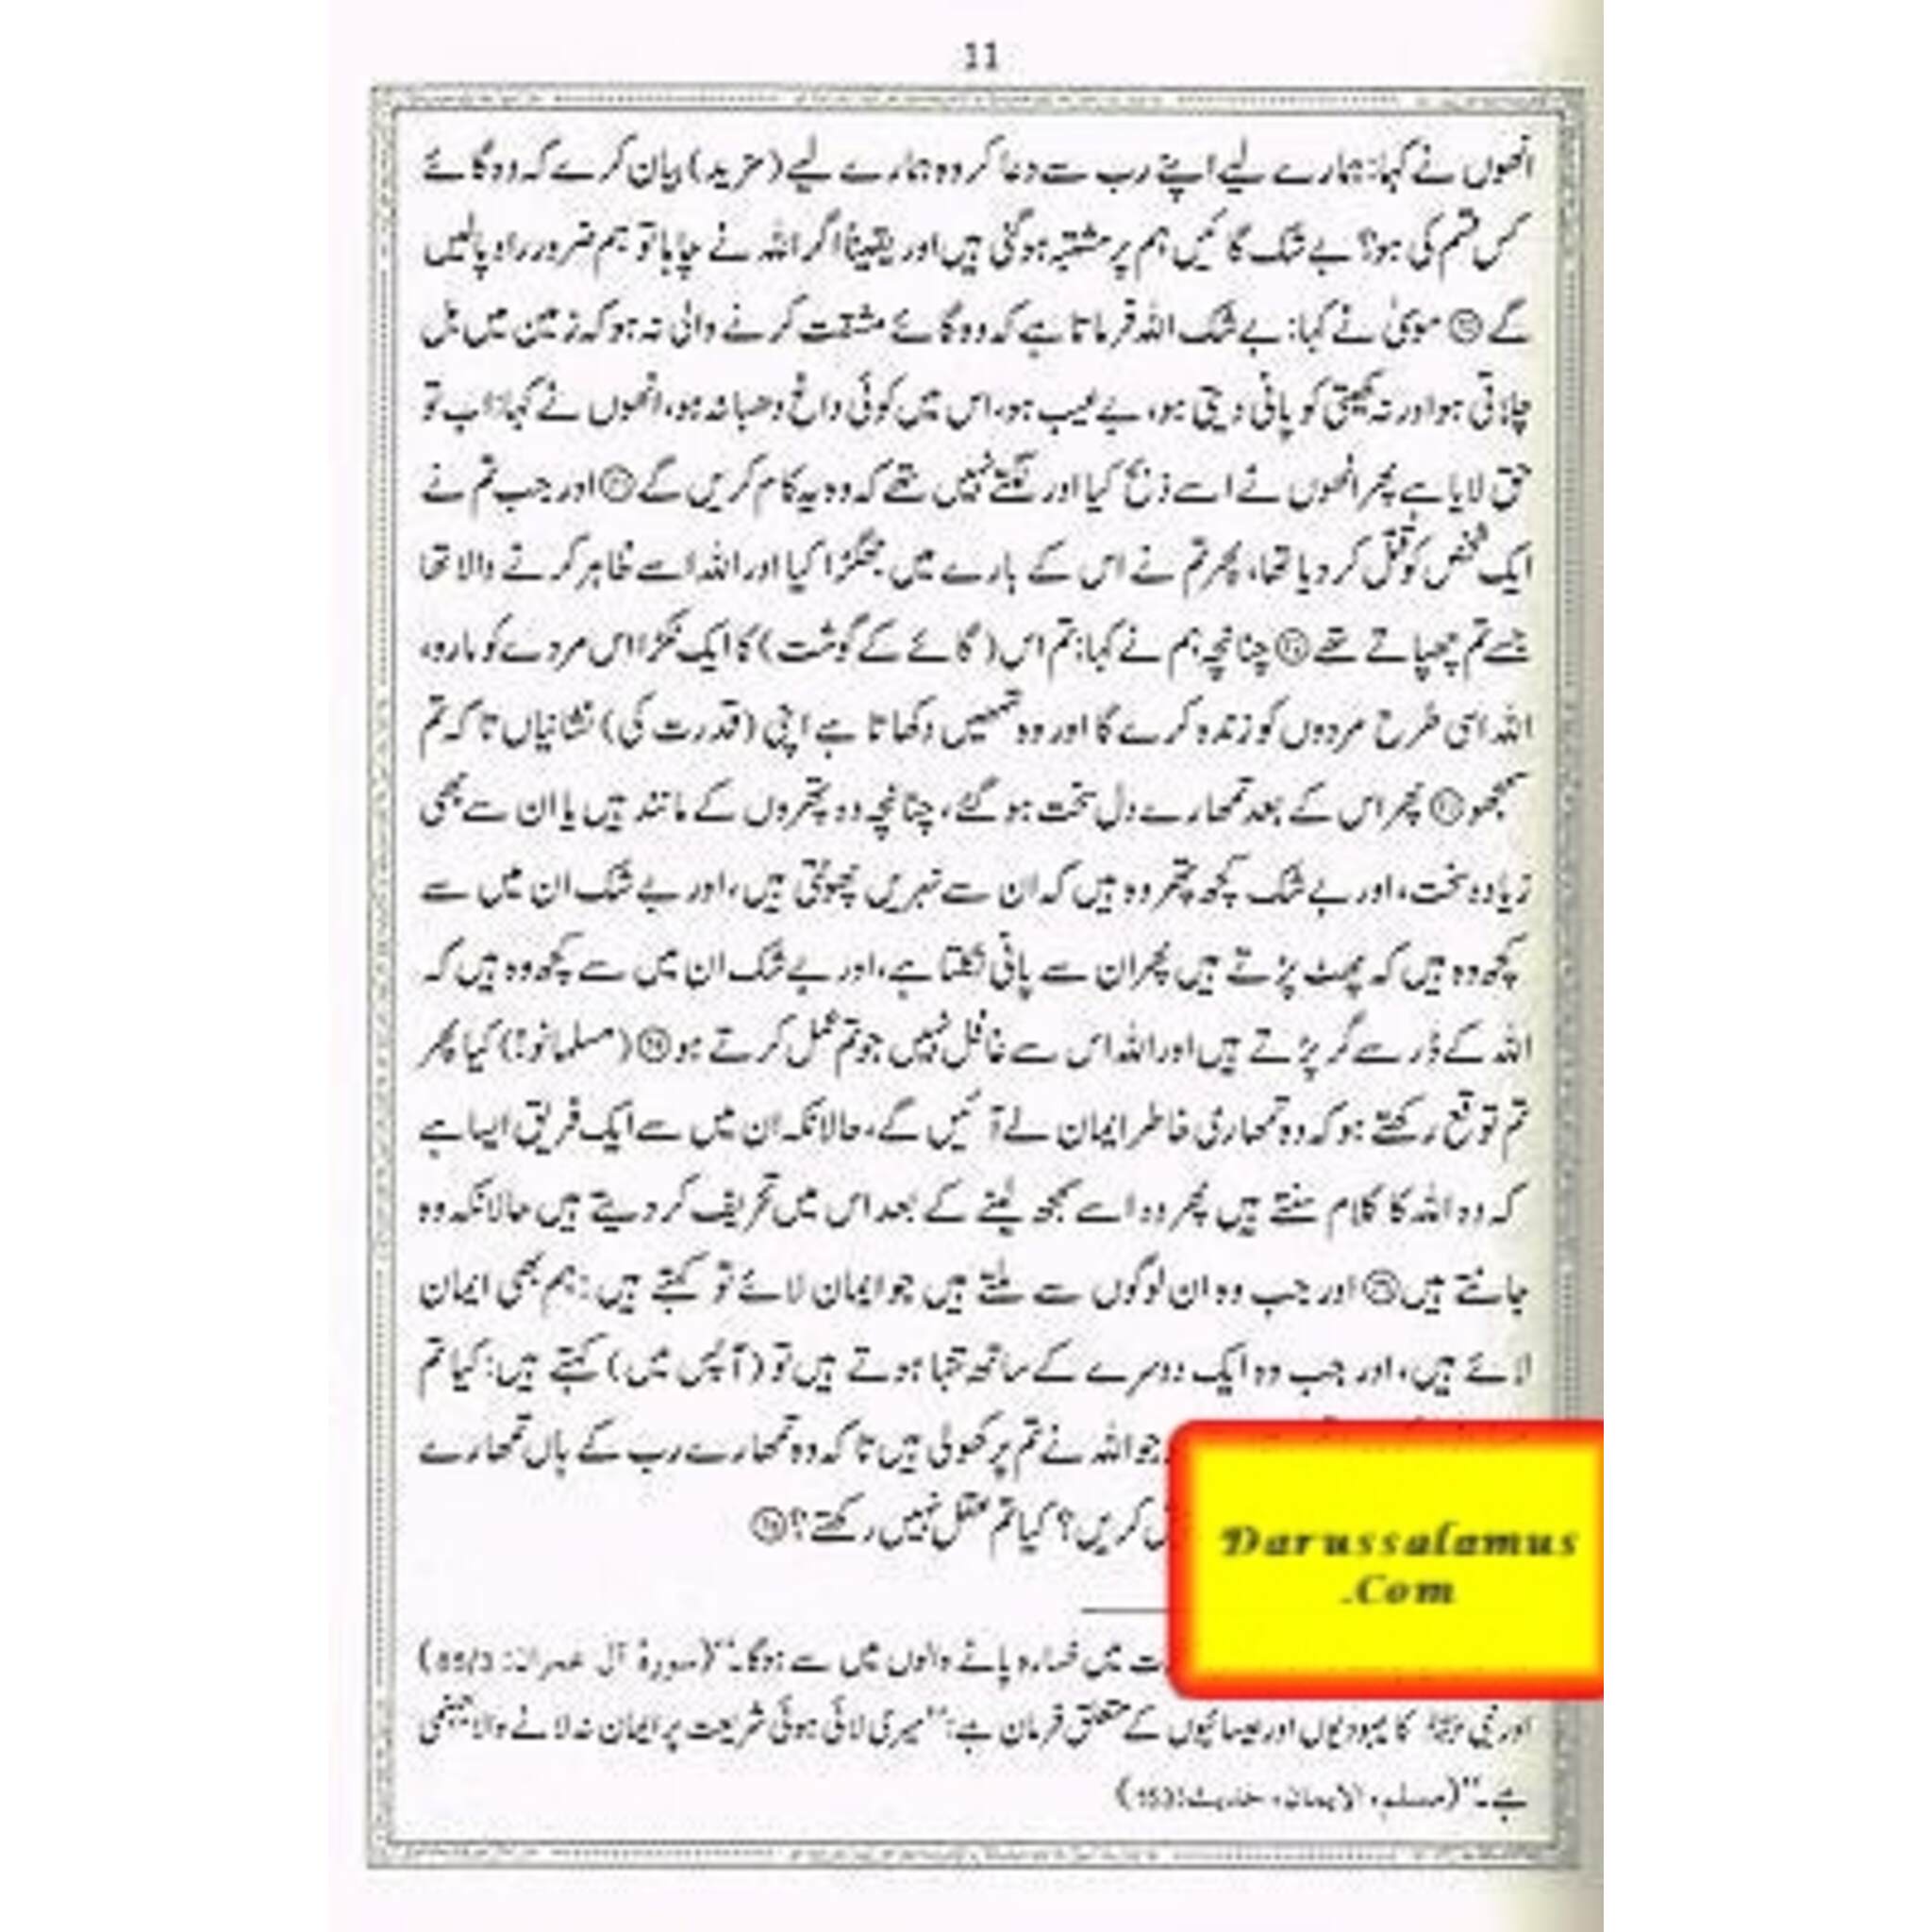 11
انھوں نے کہا: ہمارے لیے اپنے رب سے دعا کر وہ ہمارے لیے (مزید) بیان کرے کہ وہ گائے
کس قسم کی ہو؟ بے شک گائیں ہم پر مشتبہ ہوگئی ہیں اور یقیناً اگر اللہ نے چاہا تو ہم ضرور راہ پالیں
گے ۷۰ موسیٰ نے کہا: بے شک اللہ فرماتا ہے کہ وہ گائے مشقت کرنے والی نہ ہو کہ زمین میں ہل
چلاتی ہو اور نہ کھیتی کو پانی دیتی ہو، بے عیب ہو، اس میں کوئی داغ دھبا نہ ہو، انھوں نے کہا: اب تو
حق لایا ہے پھر انھوں نے اسے ذبح کیا اور لگتے نہیں تھے کہ وہ یہ کام کریں گے ۷۱ اور جب تم نے
ایک شخص کو قتل کر دیا تھا، پھر تم نے اس کے بارے میں جھگڑا کیا اور اللہ اسے ظاہر کرنے والا تھا
جسے تم چھپاتے تھے ۷۲ چنانچہ ہم نے کہا: تم اس (گائے کے گوشت) کا ایک ٹکڑا اس مردے کو مارو،
اللہ اسی طرح مردوں کو زندہ کرے گا اور وہ تمھیں دکھاتا ہے اپنی (قدرت کی) نشانیاں تاکہ تم
سمجھو ۷۳ پھر اس کے بعد تمھارے دل سخت ہو گئے، چنانچہ وہ پتھروں کے مانند ہیں یا ان سے بھی
زیادہ سخت، اور بے شک کچھ پتھر وہ ہیں کہ ان سے نہریں پھوٹتی ہیں، اور بے شک ان میں سے
کچھ وہ ہیں کہ پھٹ پڑتے ہیں پھر ان سے پانی نکلتا ہے، اور بے شک ان میں سے کچھ وہ ہیں کہ
اللہ کے ڈر سے گر پڑتے ہیں اور اللہ اس سے غافل نہیں جو تم عمل کرتے ہو ۷۴ (مسلمانو!) کیا پھر
تم توقع رکھتے ہو کہ وہ تمھاری خاطر ایمان لے آئیں گے، حالانکہ ان میں سے ایک فریق ایسا ہے
کہ وہ اللہ کا کلام سنتے ہیں پھر وہ اسے سمجھ لینے کے بعد اس میں تحریف کر دیتے ہیں حالانکہ وہ
جانتے ہیں ۷۵ اور جب وہ ان لوگوں سے ملتے ہیں جو ایمان لائے تو کہتے ہیں: ہم بھی ایمان
لائے ہیں، اور جب وہ ایک دوسرے کے ساتھ تنہا ہوتے ہیں تو (آپس میں) کہتے ہیں: کیا تم
جو اللہ نے تم پر کھولی ہیں تاکہ وہ تمھارے رب کے ہاں تمھارے
کریں؟ کیا تم عقل نہیں رکھتے؟ ۷۶
Darussalamus
.Com
میں خسارہ پانے والوں میں سے ہوگا۔" (سورۂ آل عمران: 85/3)
اور نبی ﷺ کا یہودیوں اور عیسائیوں کے متعلق فرمان ہے: "میری لائی ہوئی شریعت پر ایمان نہ لانے والا جہنمی
ہے۔" (مسلم، الایمان، حدیث: 153)